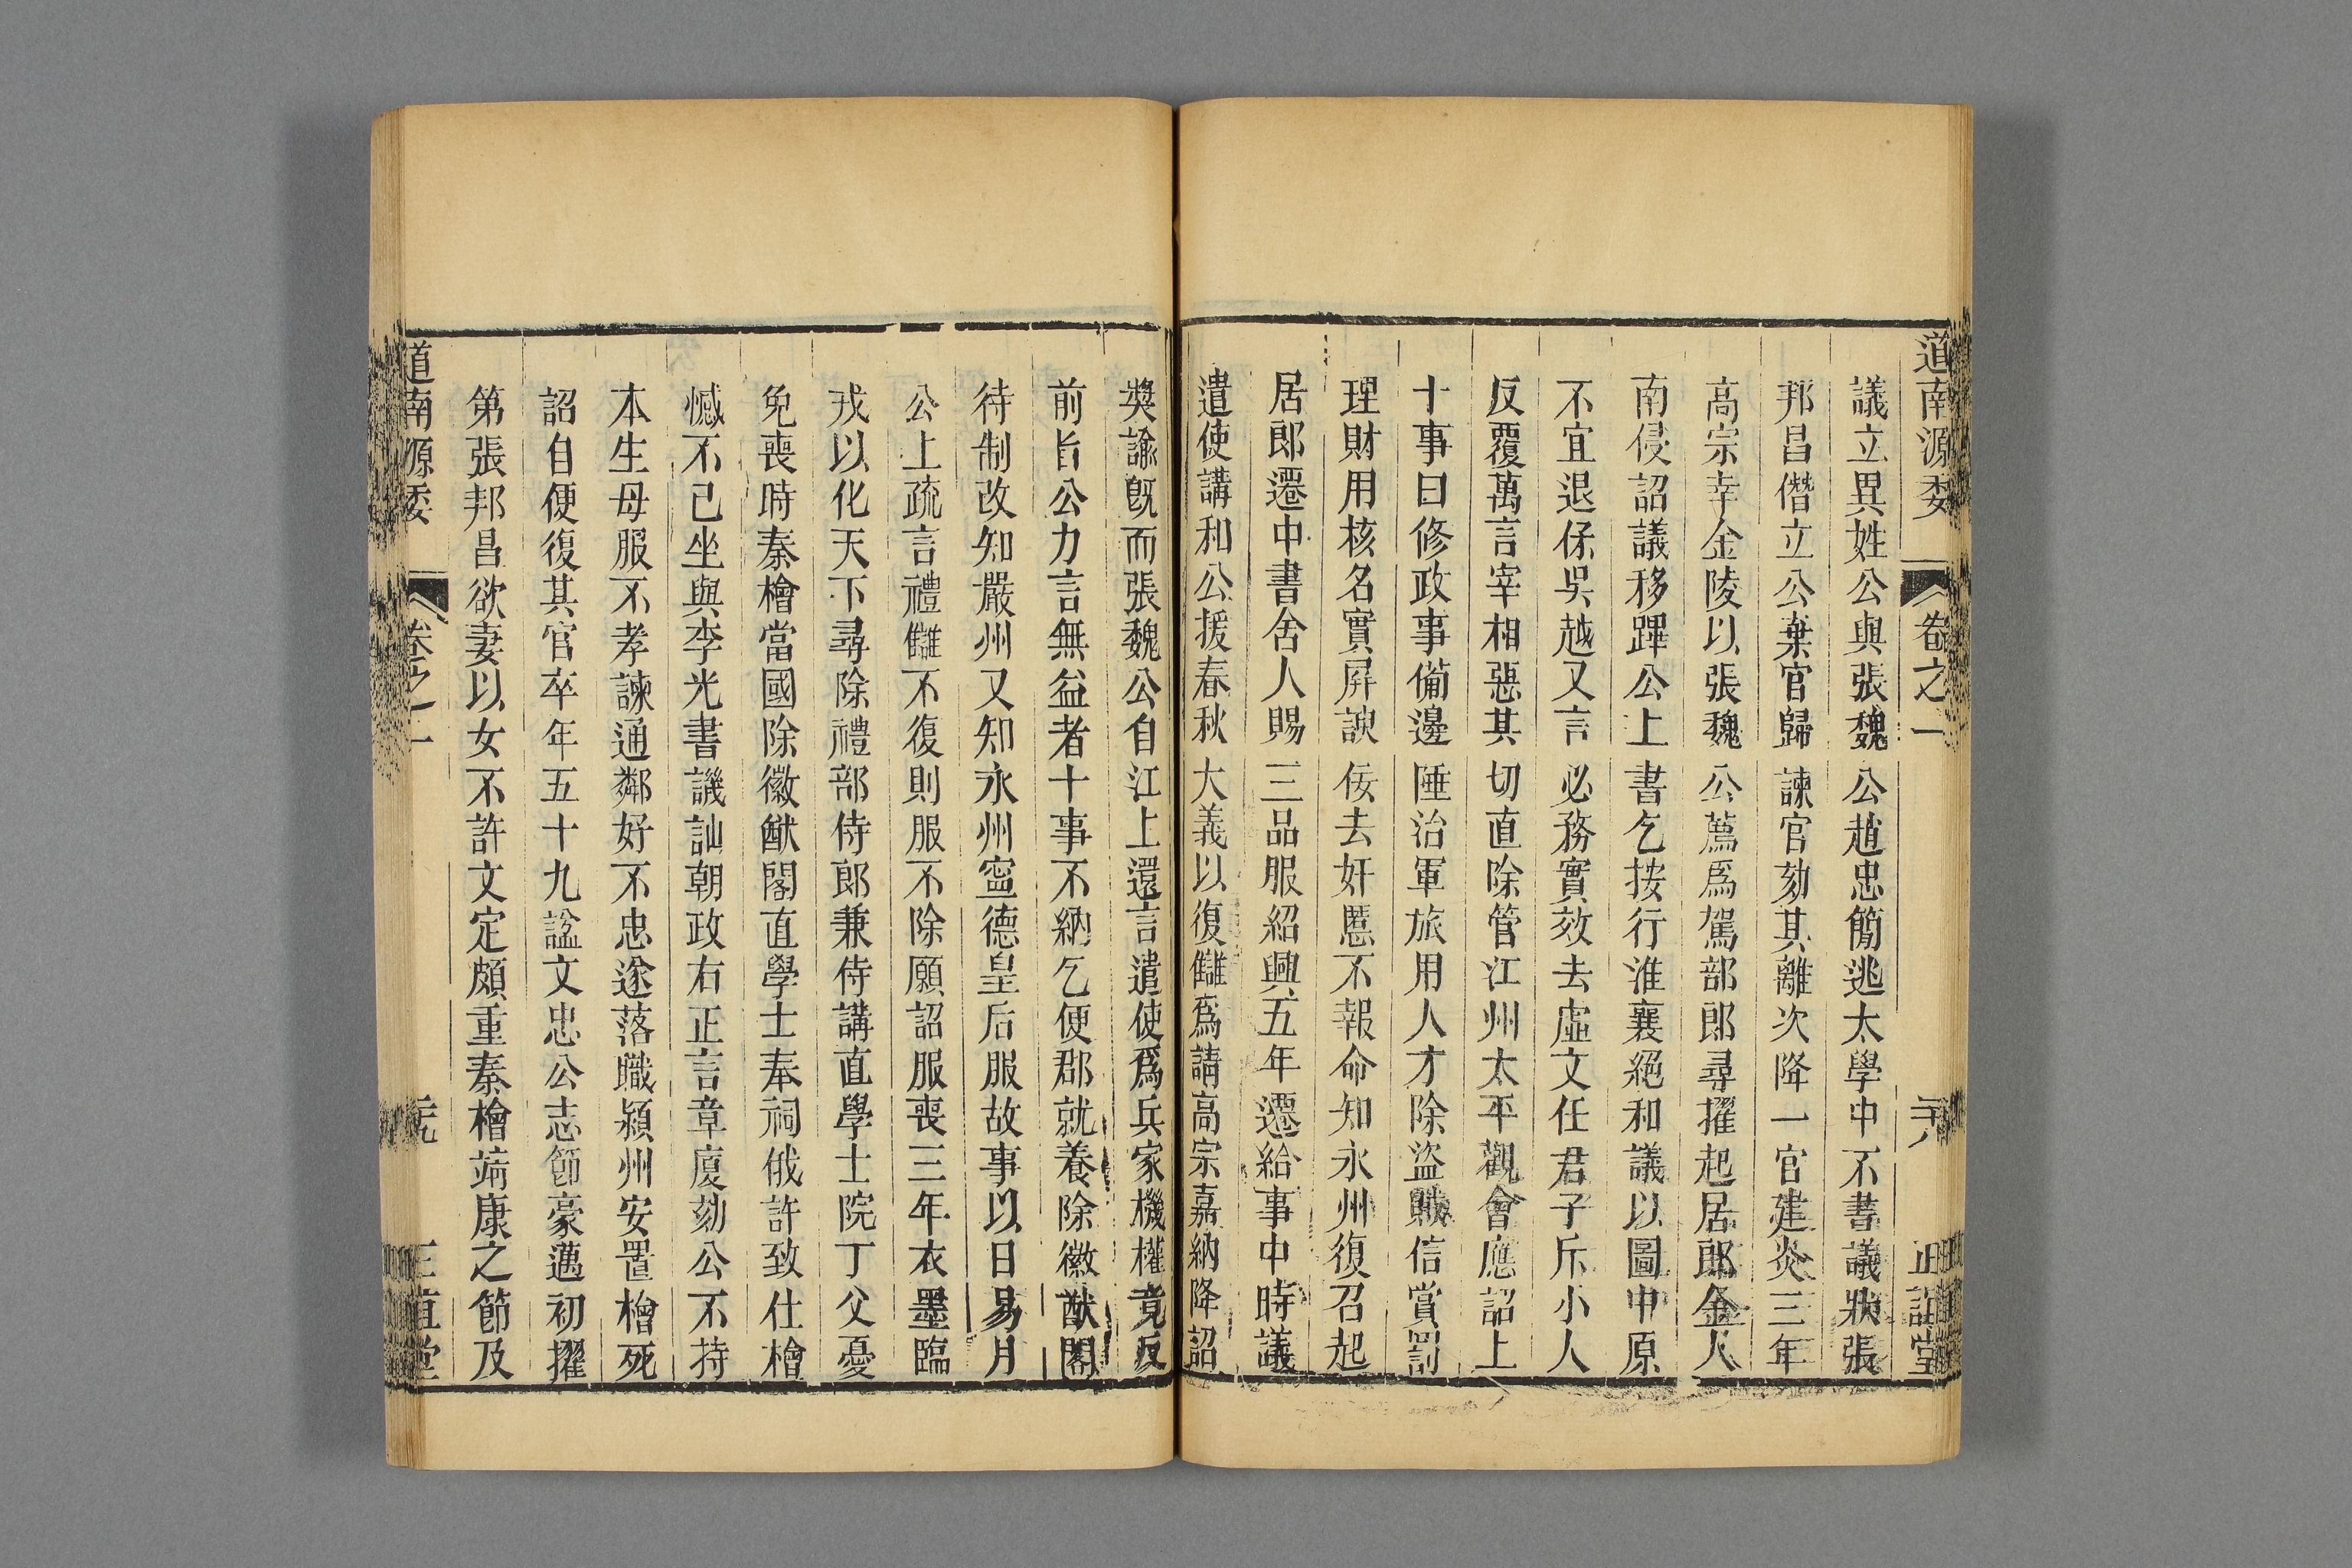 道南源委 卷之一 二十八 正誼堂
議立異姓公與張魏公趙忠簡逃太學中不書議狀張
邦昌僭立公棄官歸諫官劾其離次降一官建炎三年
高宗幸金陵以張魏公薦爲駕部郎尋擢起居郎金人
南侵詔議移蹕公上書乞按行淮襄絕和議以圖中原
不宜退保吳越又言必務實效去虛文任君子斥小人
反覆萬言宰相惡其切直除管江州太平觀會應詔上
十事曰修政事備邊陲治軍旅用人才除盜賊信賞罰
理財用核名實屏諛佞去奸慝不報命知永州復召起
居郎遷中書舍人賜三品服紹興五年遷給事中時議
遣使講和公援春秋大義以復讎爲請高宗嘉納降詔
獎諭旣而張魏公自江上還言遣使爲兵家機權竟反
前旨公力言無益者十事不納乞便郡就養除徽猷閣
待制改知嚴州又知永州寧德皇后服故事以日易月
公上疏言禮讎不復則服不除願詔服喪三年衣墨臨
戎以化天下尋除禮部侍郎兼侍講直學士院丁父憂
免喪時秦檜當國除徽猷閣直學士奉祠俄許致仕檜
憾不已坐與李光書譏訕朝政右正言章廈劾公不持
本生母服不孝諫通鄰好不忠遂落職潁州安置檜死
詔自便復其官卒年五十九諡文忠公志節豪邁初擢
第張邦昌欲妻以女不許文定頗重秦檜靖康之節及
道南源委 卷之一 二十九 正誼堂